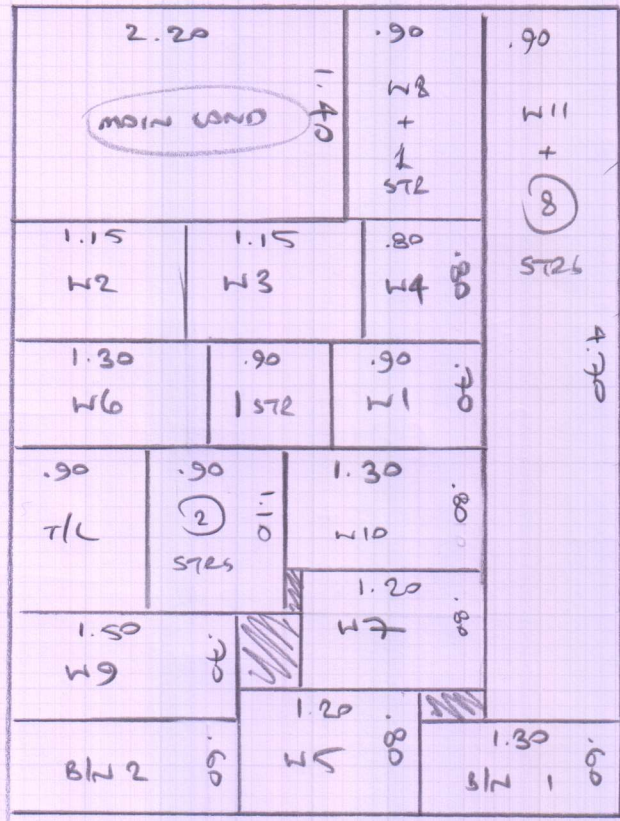 2.20
1.40
MAIN LAND
.90
W8
+
1
STR
.90
W11
+
8
STRS
4.70
1.15
W2
1.15
W3
.80
W4
.80
1.30
W6
.90
1 STR
.90
W1
.70
.90
T/L
.90
2
STRS
1.10
1.30
W10
.80
1.20
W7
.80
1.50
W9
.70
B/W 2
.60
1.20
W5
.80
1.30
B/W 1
.60